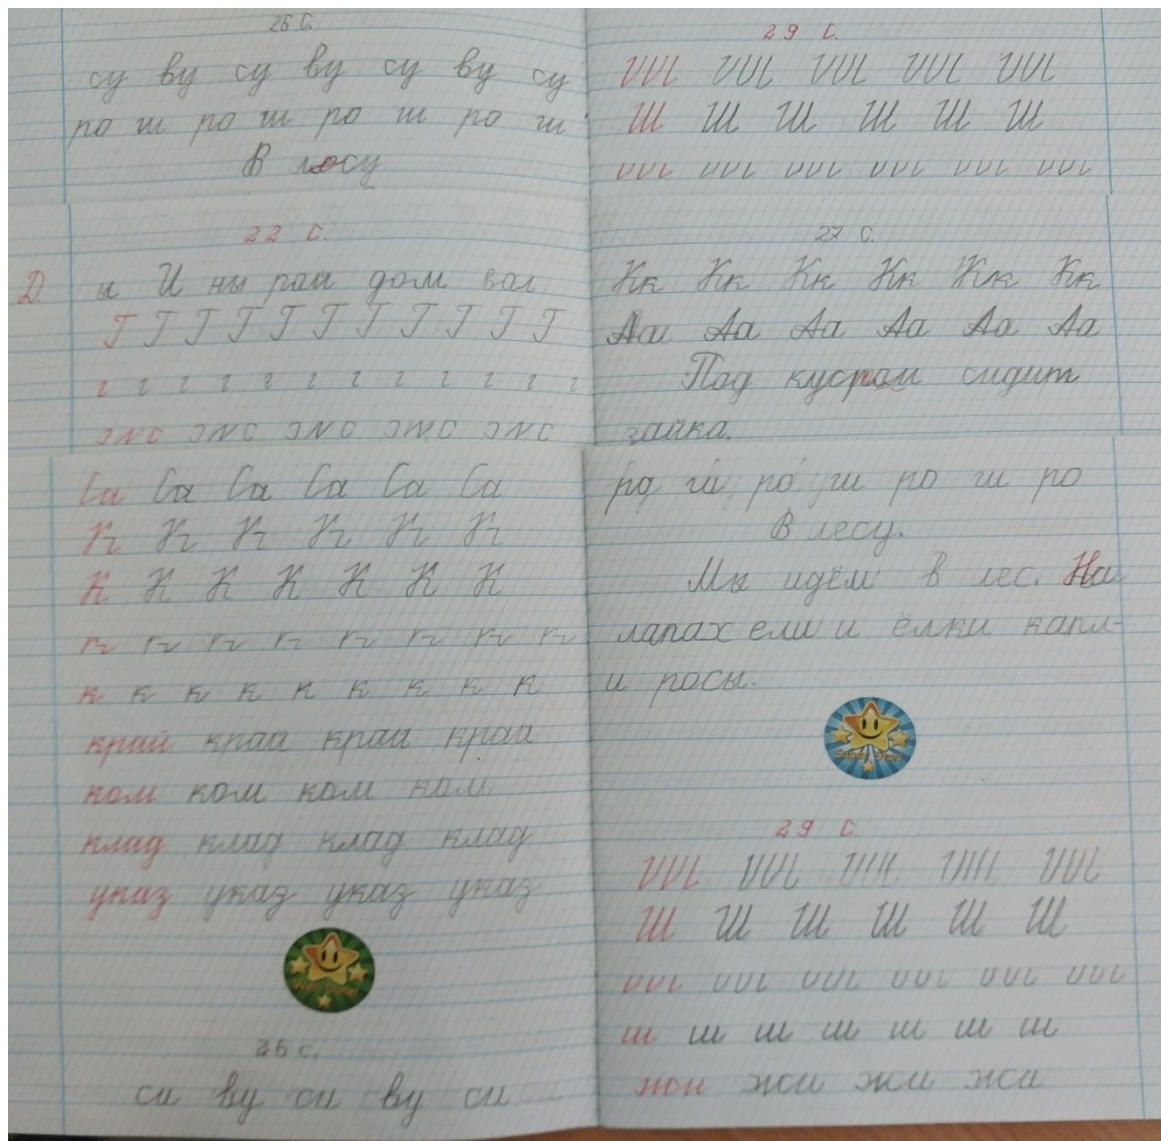 26 С.
су ву су ву су ву су
ро ш ро ш ро ш ро ш
В лесу
22 С.
Д. и И ны рай дом вол
Г Г Г Г Г Г Г Г Г Г Г
г г г г г г г г г г г г
Са Са Са Са Са Са
К К К К К К К
к к к к к к к к к
край край край край
ком ком ком ком
клад клад клад клад
указ указ указ указ
26 с.
си ву си ву си
29 С.
Ш Ш Ш Ш Ш Ш
27 С.
Кк Кк Кк Кк Кк Кк
Аа Аа Аа Аа Аа Аа
Под кустом сидит
зайка.
ро ши ро ши ро ши ро
В лесу.
Мы идём в лес. На
лапах ели и ёлки капл-
и росы.
Super Star
29 С.
Ш Ш Ш Ш Ш Ш
ш ш ш ш ш ш ш
жи жи жи жи